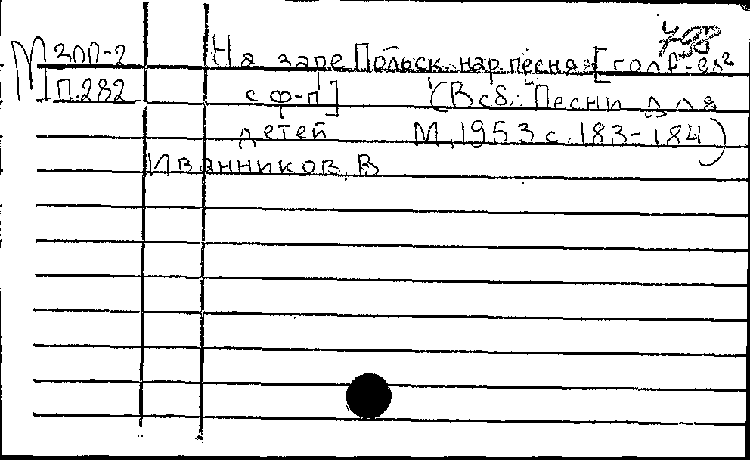 М ЗОП-2 На заре Польск. нар. песня [голос
П.282 с ф-п] (В сб: "Песни для
детей М, 1953 с. 183-184)
Иванников, В